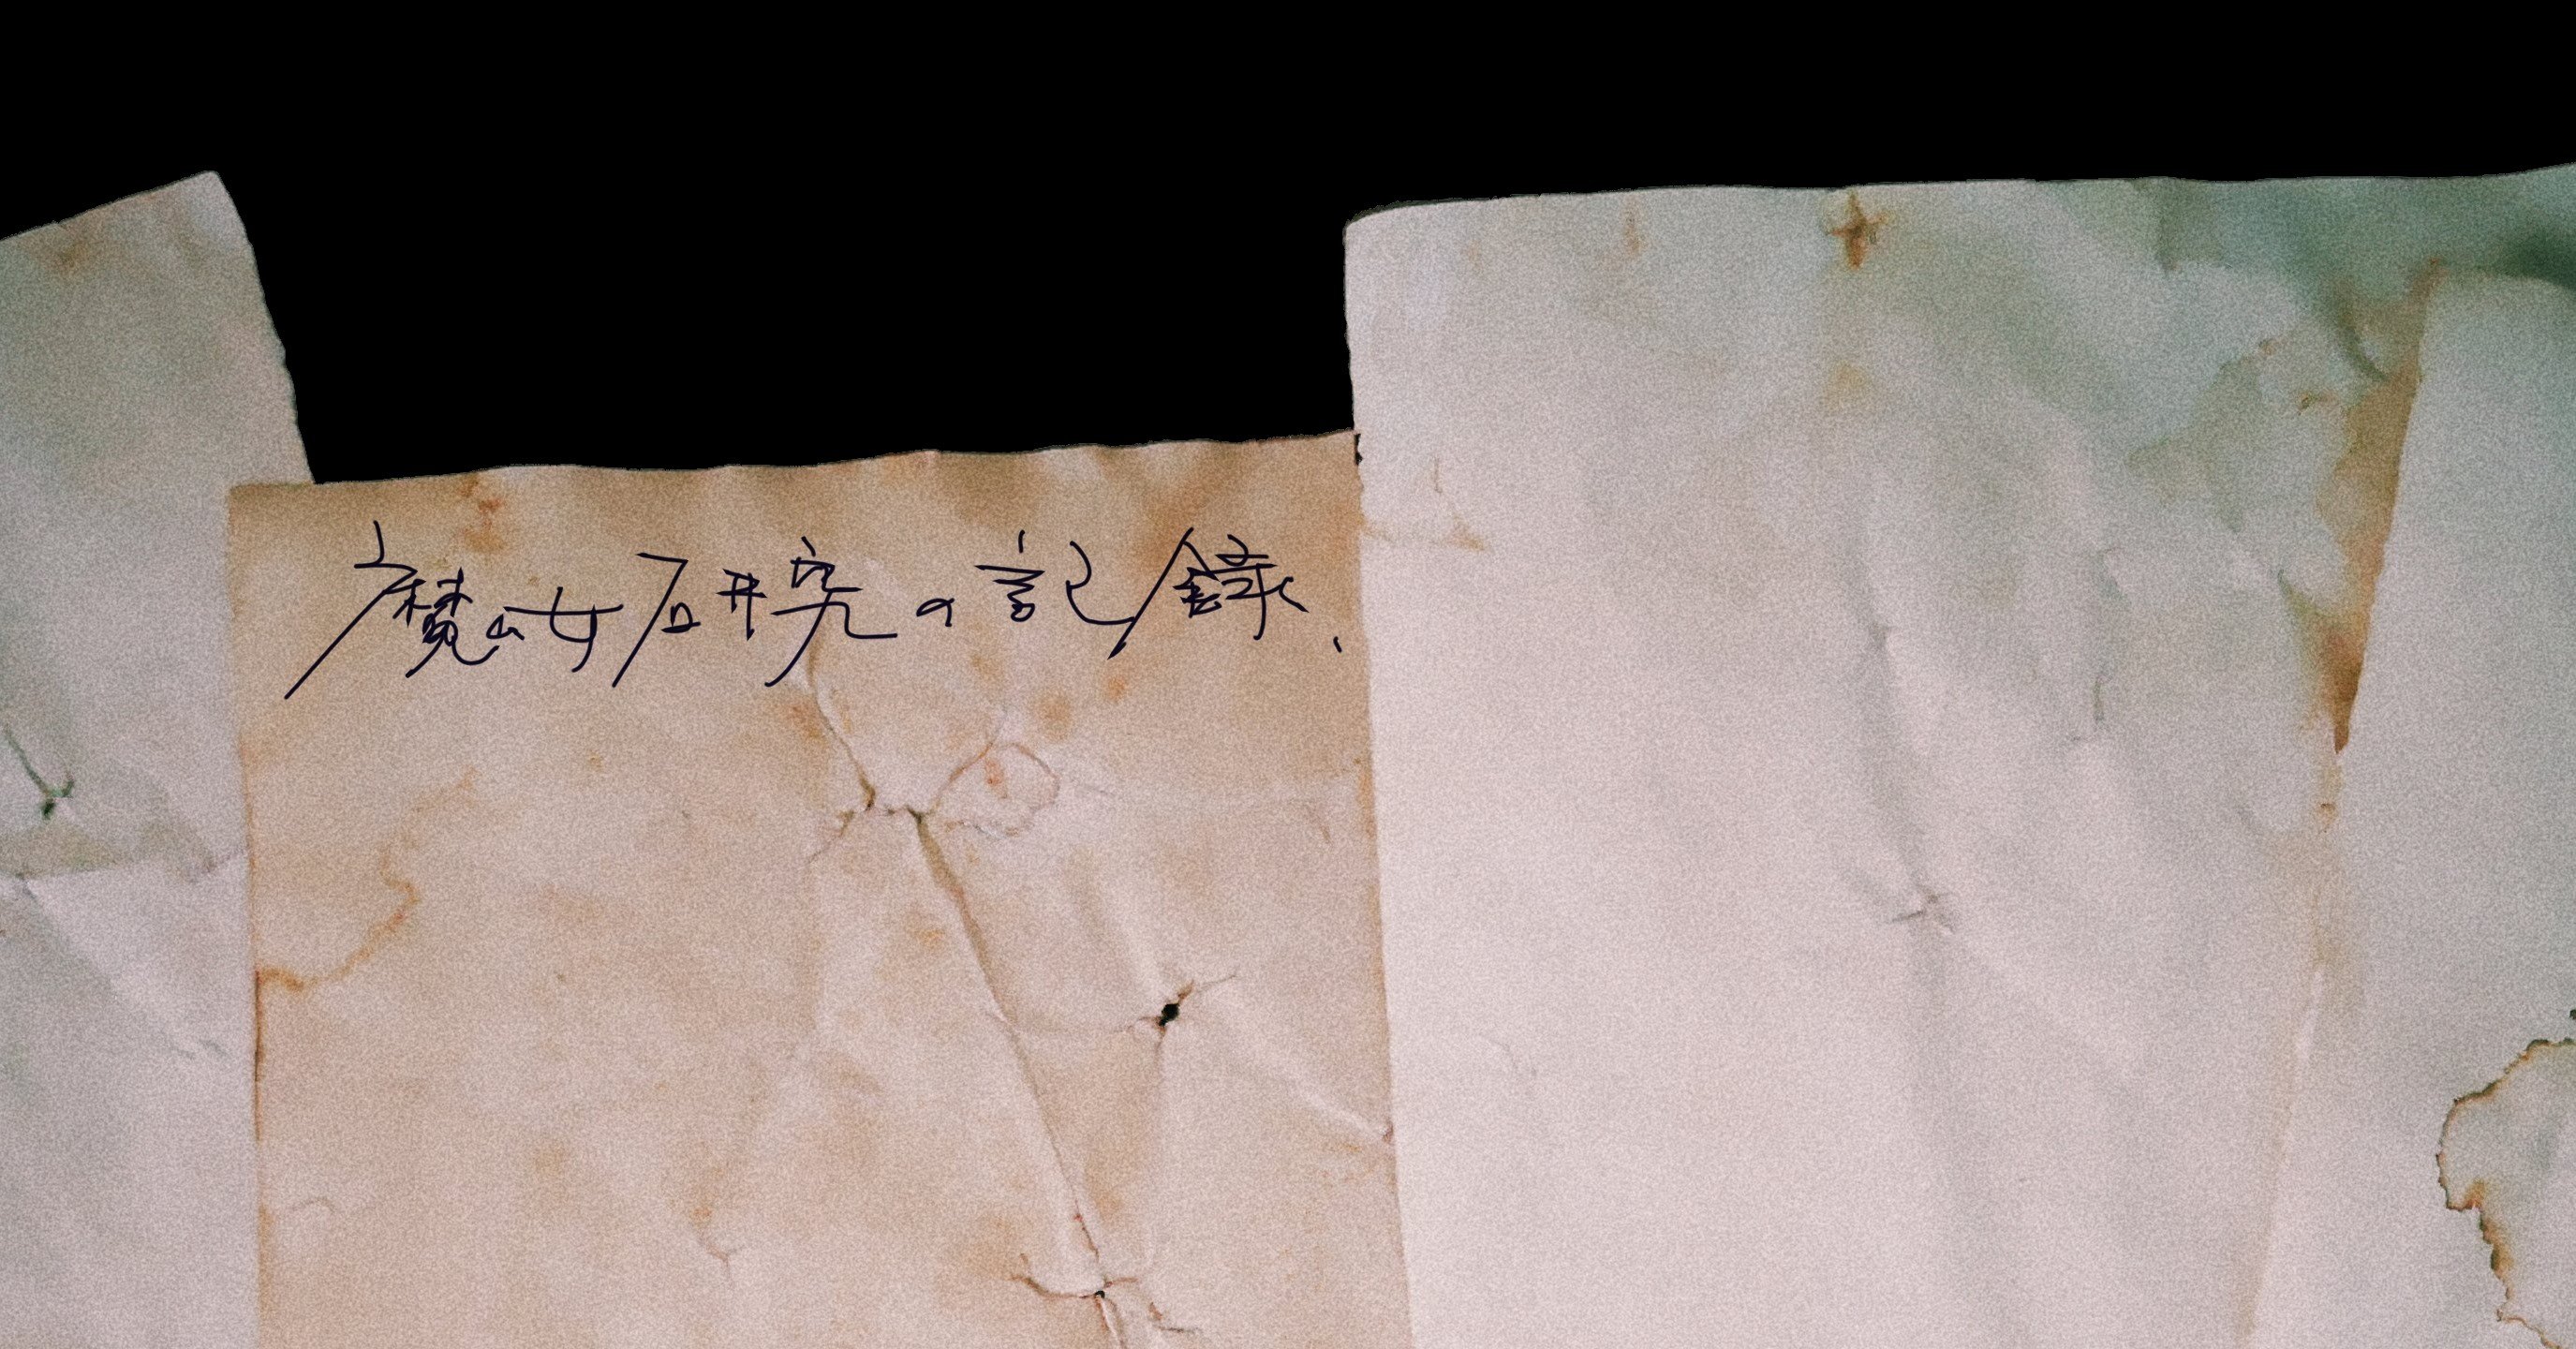 魔女研究の記録、